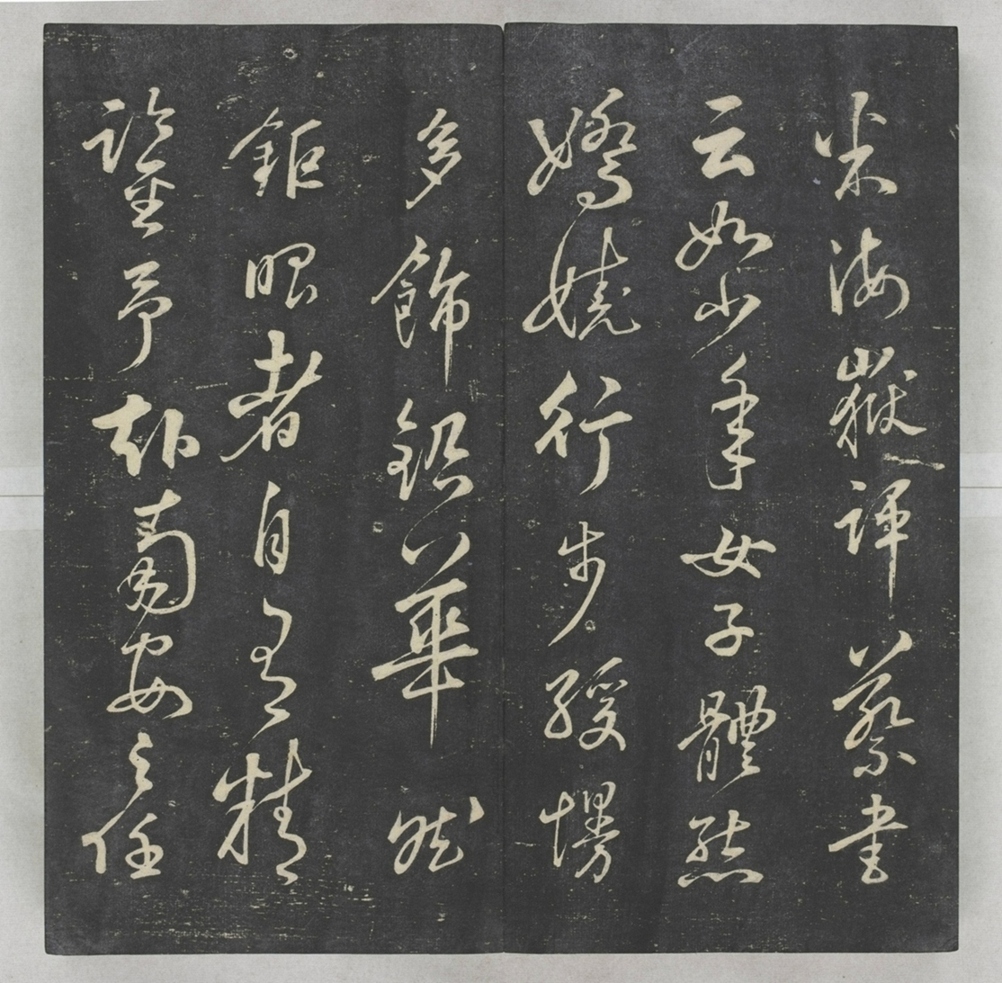 米海嶽評蔡書
云如少年女子體態
嬌嬈行步緩慢
多飾鉛華然
鉅眼者自有精
鑒予赴南安之任